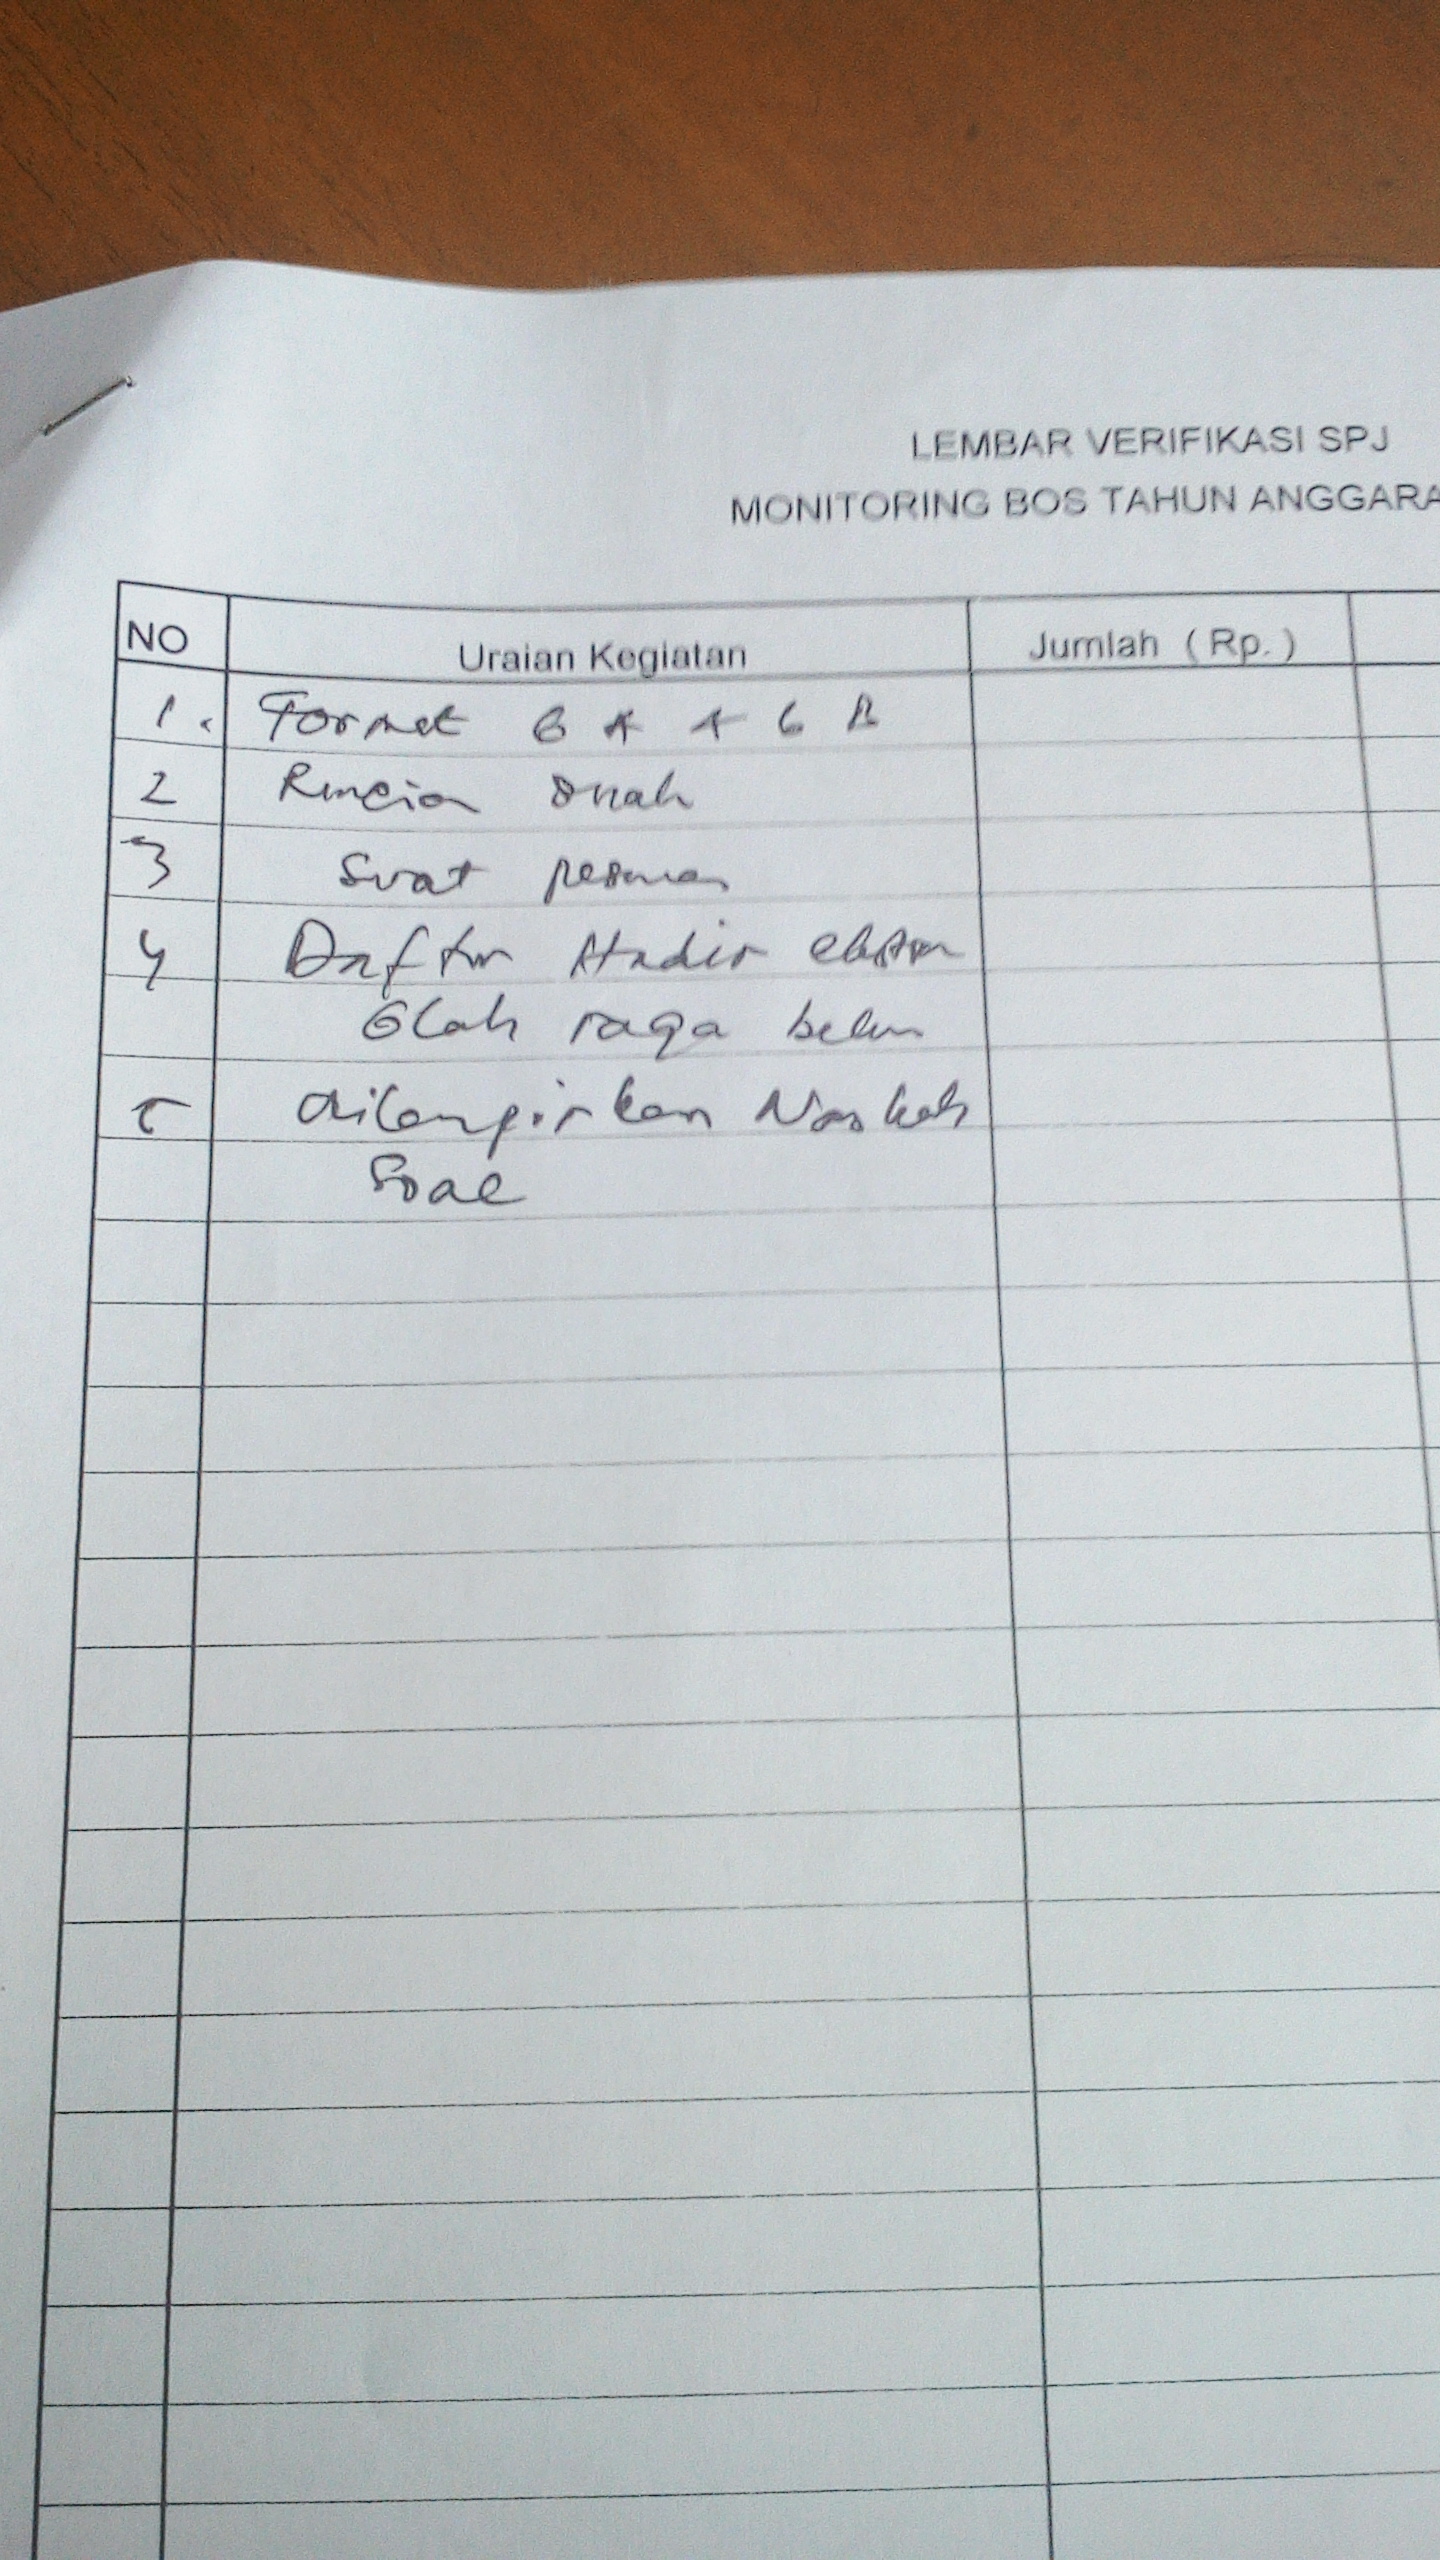 LEMBAR VERIFIKASI SPJ
MONITORING BOS TAHUN ANGGARA
NO Uraian Kegiatan Jumlah ( Rp. )
1. Format 6 A + 6 B
2 Rincian
3 Surat pesanan
4 Daftar Hadir
Olah raga belum
5 dilampirkan Naskah
Soal